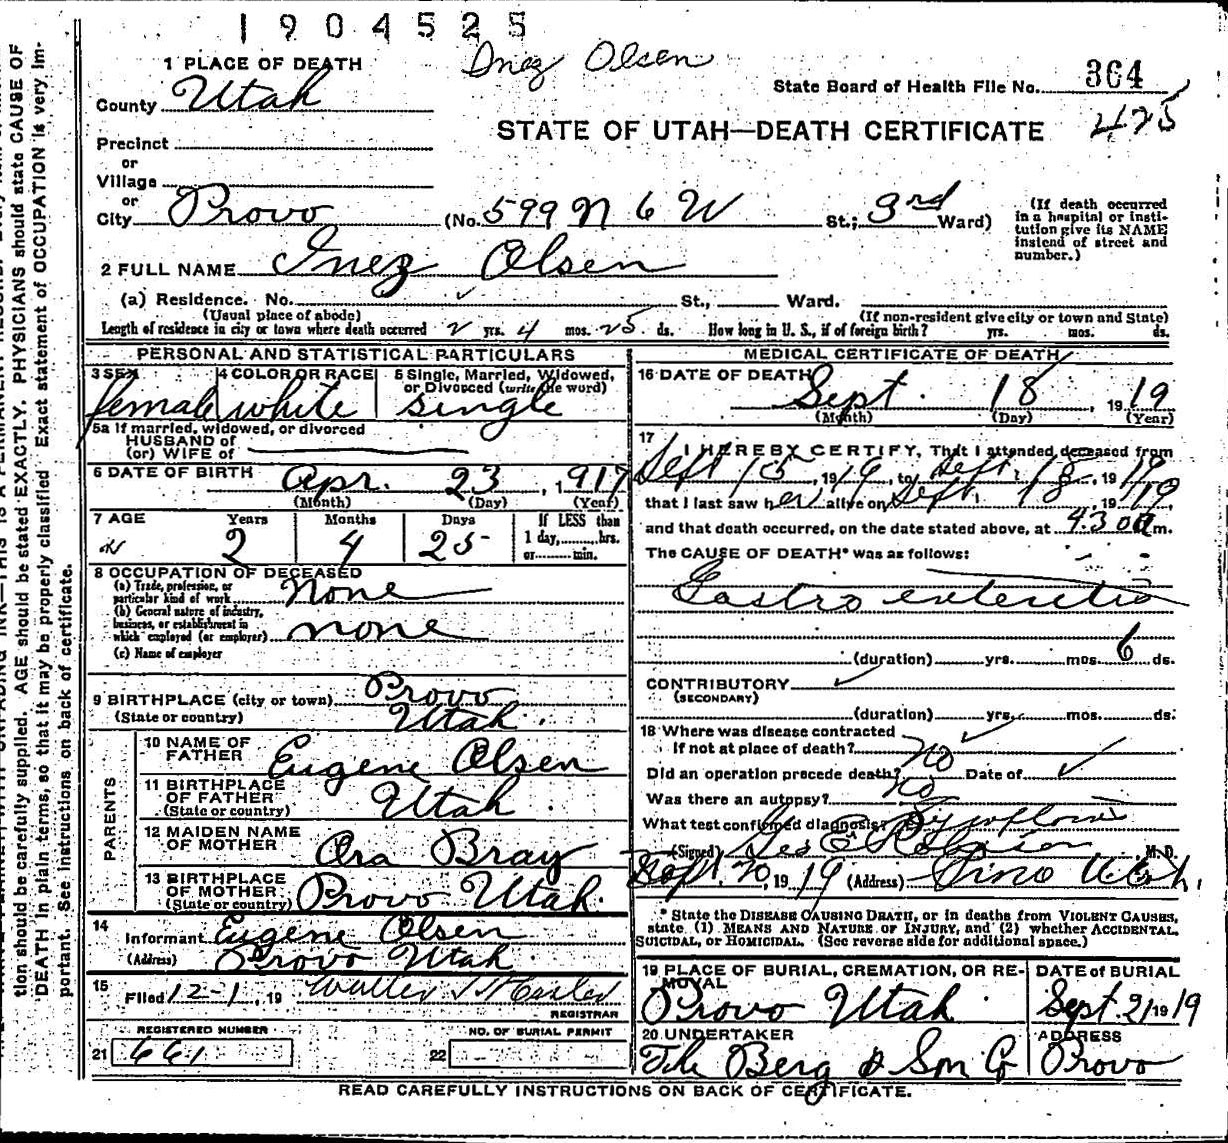 1904525
Inez Olsen
1 PLACE OF DEATH
State Board of Health File No. 364
County Utah
425
STATE OF UTAH—DEATH CERTIFICATE
Precinct
or
Village
or
City Provo (No. 599 N 6 W St.; 3rd Ward)
(If death occurred in a hospital or institution give its NAME instead of street and number.)
2 FULL NAME Inez Olsen
(a) Residence. No. St., Ward.
(Usual place of abode) (If non-resident give city or town and State)
Length of residence in city or town where death occurred 2 yrs. 4 mos. 25 ds. How long in U. S., if of foreign birth? yrs. mos. ds.
PERSONAL AND STATISTICAL PARTICULARS
3 SEX female
4 COLOR OR RACE white
5 Single, Married, Widowed, or Divorced (write the word) single
5a If married, widowed, or divorced
HUSBAND of
(or) WIFE of
6 DATE OF BIRTH Apr. 23, 1917
(Month) (Day) (Year)
7 AGE Years Months Days If LESS than
2 4 25 1 day, hrs.
or min.
8 OCCUPATION OF DECEASED
(a) Trade, profession, or particular kind of work None
(b) General nature of industry, business, or establishment in which employed (or employer) none
(c) Name of employer
9 BIRTHPLACE (city or town) Provo
(State or country) Utah.
PARENTS
10 NAME OF FATHER Eugene Olsen
11 BIRTHPLACE OF FATHER (State or country) Utah
12 MAIDEN NAME OF MOTHER Ora Bray
13 BIRTHPLACE OF MOTHER (State or country) Provo Utah.
14
Informant Eugene Olsen
(Address) Provo Utah
15
Filed 12-1, 19 Walter
REGISTRAR
REGISTERED NUMBER NO. OF BURIAL PERMIT
21 661 22
MEDICAL CERTIFICATE OF DEATH
16 DATE OF DEATH Sept. 18, 1919
(Month) (Day) (Year)
17 I HEREBY CERTIFY, That I attended deceased from
Sept 15, 1919, to Sept. 18, 1919
that I last saw her alive on Sept. 18 1919
and that death occurred, on the date stated above, at 4.30 a m.
The CAUSE OF DEATH* was as follows:
Gastro enteritis
(duration) yrs. mos. 6 ds.
CONTRIBUTORY
(SECONDARY)
(duration) yrs. mos. ds.
18 Where was disease contracted
If not at place of death?
Did an operation precede death? no Date of
Was there an autopsy? no
What test confirmed diagnosis? Symptoms
(Signed) Geo E Robinson M. D.
Sept. 20, 1919 (Address) Utah.
* State the DISEASE CAUSING DEATH, or in deaths from VIOLENT CAUSES,
state (1) MEANS AND NATURE OF INJURY, and (2) whether ACCIDENTAL,
SUICIDAL, or HOMICIDAL. (See reverse side for additional space.)
19 PLACE OF BURIAL, CREMATION, OR REMOVAL Provo Utah
DATE of BURIAL Sept. 21 1919
20 UNDERTAKER The Berg & Son Co
ADDRESS Provo
READ CAREFULLY INSTRUCTIONS ON BACK OF CERTIFICATE.
tion should be carefully supplied. AGE should be stated EXACTLY. PHYSICIANS should state CAUSE OF
DEATH in plain terms, so that it may be properly classified Exact statement of OCCUPATION is very im-
portant. See instructions on back of certificate.